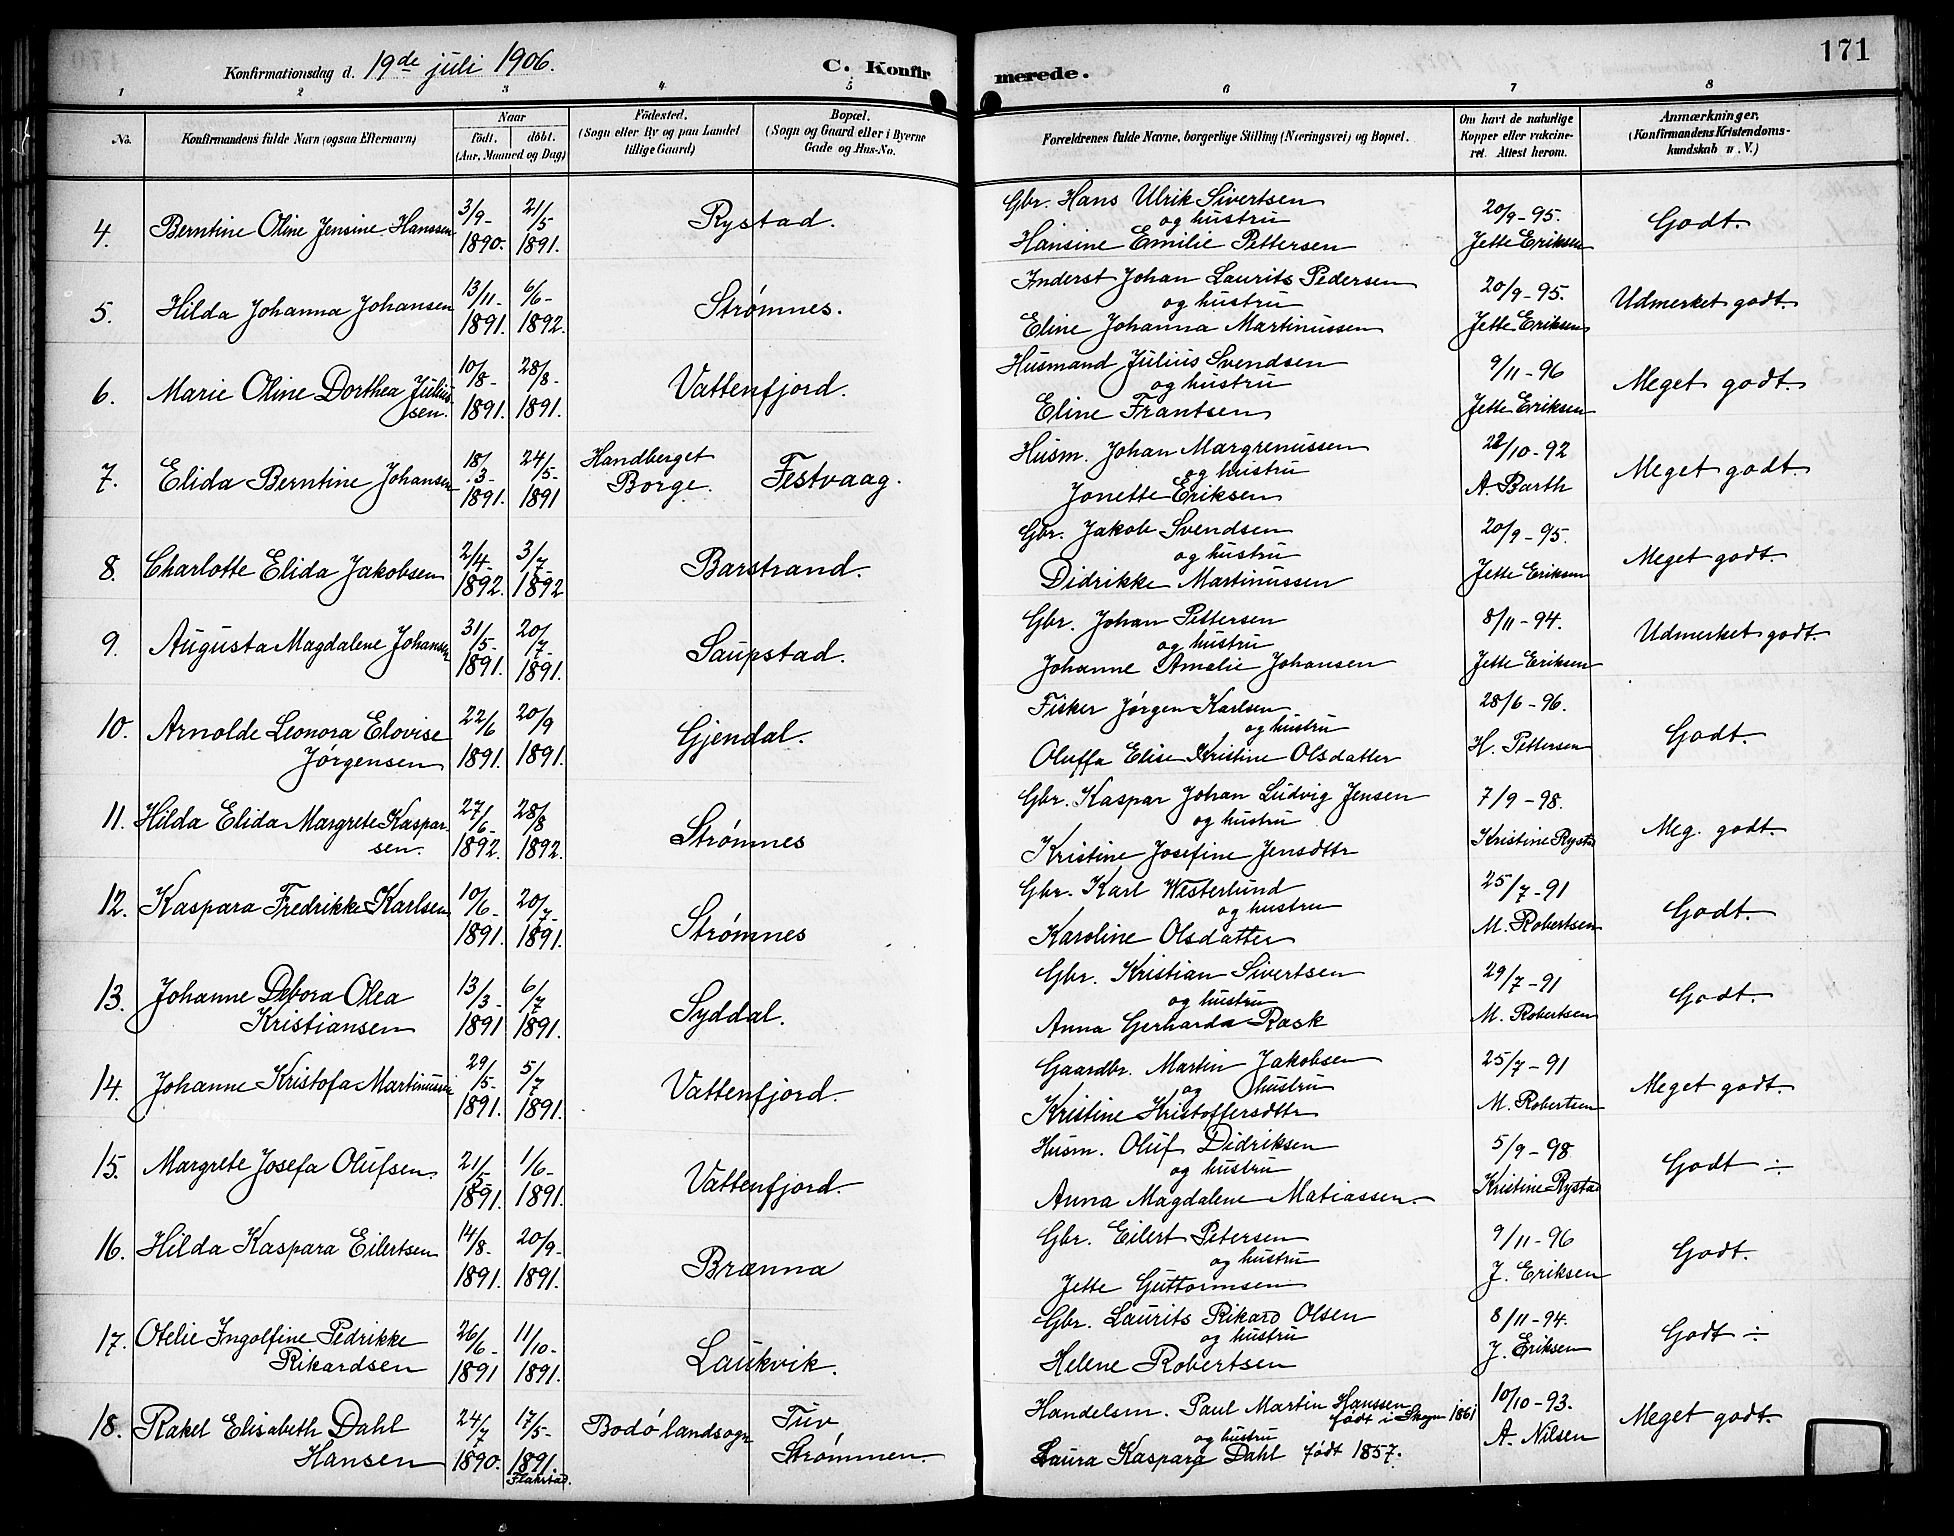 171
Konfirmationsdag d. 19de juli 1906.
C. Konfirmerede.
1 2 3 4 5 6 7 8
No. Konfirmandens fulde Navn (ogsaa Efternavn) Naar født. døbt. (Aar, Maaned og Dag) Fødested. (Sogn eller By og paa Landet tillige Gaard) Bopæl. (Sogn og Gaard eller i Byerne Gade og Hus-No. Forældrenes fulde Navne, borgerlige Stilling (Næringsvei) og Bopæl. Om havt de naturlige Kopper eller vakcineret. Attest herom. Anmærkninger, (Konfirmandens Kristendomskundskab u. V.)
4. Berntine Oline Jensine Hanssen 3/9- 1890. 21/5 1891. Rystad. Gbr. Hans Ulrik Sivertsen og hustru Hansine Emilie Pettersen 20/9-95. Jette Eriksen Godt.
5. Hilda Johanna Johansen 13/11- 1891. 6/6- 1892. Strømnes. Inderst Johan Laurits Pedersen og hustru Eline Johanna Martinussen 20/9-95. Jette Eriksen Udmerket godt.
6. Marie Oline Dorthea Juliussen. 10/8- 1891. 28/8- 1891. Vattenfjord. Husmand Julius Svendsen og hustru Eline Frantsen 9/11-96 Jette Eriksen Meget godt.
7. Elida Berntine Johansen 18/3- 1891. 24/5- 1891 Handberget Borge. Festvaag. Husm. Johan Margrenussen og hustru Jonette Eriksen 22/10-92 A. Barth Meget godt.
8. Charlotte Elida Jakobsen 2/4- 1892. 3/7- 1892 Barstrand. Gbr. Jakob Svendsen og hustru Didrikke Martinussen 20/9-95. Jette Eriksen Meget godt.
9. Augusta Magdalene Johansen 31/5- 1891. 20/7- 1891. Saupstad. Gbr. Johan Pettersen og hustru Johanne Amalie Johansen 8/11-94. Jette Eriksen Udmerket godt.
10. Arnolde Leonora Elovise Jørgensen 22/6 1891. 20/9 1891. Gjendal. Fisker Jørgen Karlsen og hustru Oluffa Elise Kristine Olsdatter 28/6-96. H. Pettersen Godt.
11. Hilda Elida Margrete Kasparsen. 27/6- 1892. 28/8 1892. Strømnes Gbr. Kaspar Johan Ludvig Jensen og hustru Kristine Josefine Jensdttr 7/9-98. Kristine Rystad Meg. godt.
12. Kaspara Fredrikke Karlsen 10/6- 1891. 20/7- 1891. Strømnes Gbr. Karl Westerlund og hustru Karoline Olsdatter 25/7-91 M. Robertsen Godt.
13. Johanne Debora Olea Kristiansen 13/3- 1891 6/7 1891. Syddal. Gbr. Kristian Sivertsen og hustru Anna Gerharda Rask 29/7-91 M. Robertsen Godt.
14. Johanne Kristofa Martinussen 29/5- 1891. 5/7 1891. Vattenfjord. Gaardbr. Martin Jakobsen og hustru Kristine Kristoffersdttr 25/7-91 M. Robertsen Meget godt.
15. Margrete Josefa Olufsen. 21/5- 1891. 1/6- 1891. Vattenfjord. Husm. Oluf Didriksen og hustru Anna Magdalene Matiassen. 5/9-98. Kristine Rystad Godt ÷
16. Hilda Kaspara Eilertsen 14/8- 1891. 20/9- 1891. Brænna Gbr. Eilert Petersen og hustru Jette Guttormsen 9/11-96 J. Eriksen Godt.
17. Otelie Ingolfine Pedrikke Rikardsen 26/6- 1891 11/10- 1891. Laukvik. Gbr. Laurits Rikard Olsen og hustru Helene Robertsen 8/11-94. J. Eriksen Godt ÷
18. Rakel Elisabeth Dahl Hansen 24/7 1890. 17/5- 1891. Flakstad. Bodø landsogn Tuv Strømmen. Handelsm. Paul Martin Hanssen født i 1861 og hustru Laura Kaspara Dahl født 1857. 10/10-93. A. Nilsen Meget godt.